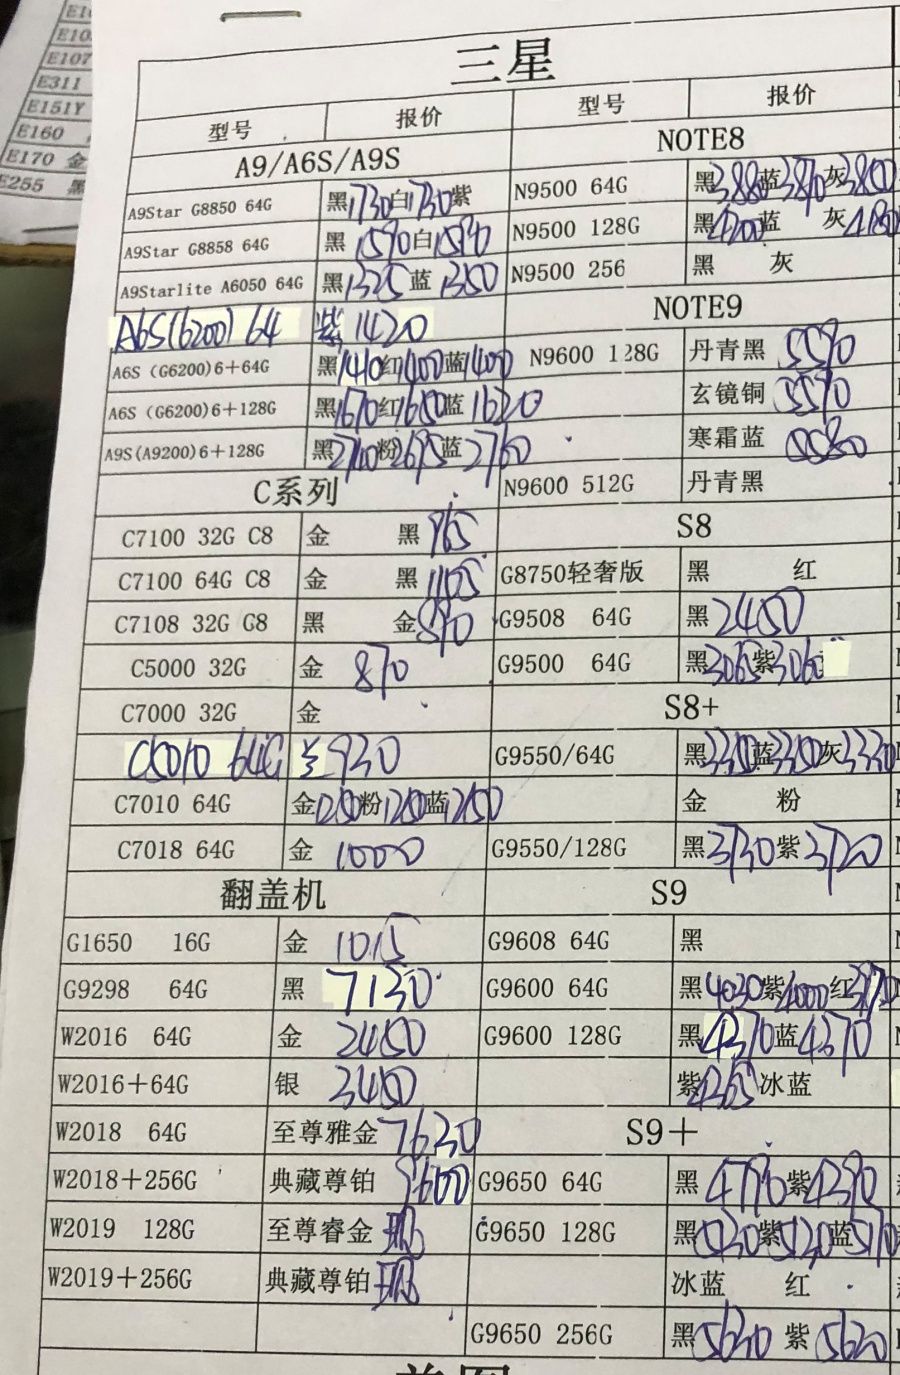 E10
E107
E311
E151Y
E160
E170 金
E255 黑
三星
型号 报价 型号 报价
A9/A6S/A9S
A9Star G8850 64G 黑1730白1730紫
A9Star G8858 64G 黑1590白1590
A9Starlite A6050 64G 黑1325蓝1350
A6S(6200) 64 紫1420
A6S (G6200)6+64G 黑1410红1400蓝1400
A6S (G6200)6+128G 黑1670红1650蓝1620
A9S(A9200)6+128G 黑2710粉2695蓝2760
C系列
C7100 32G C8 金 黑965
C7100 64G C8 金 黑1105
C7108 32G C8 黑 金890
C5000 32G 金 870
C7000 32G 金
C5010 64G 930
C7010 64G 金1250粉1250蓝1250
C7018 64G 金 1000
翻盖机
G1650 16G 金 1015
G9298 64G 黑 7130
W2016 64G 金 2450
W2016+64G 银 3450
W2018 64G 至尊雅金7630
W2018+256G 典藏尊铂 9600
W2019 128G 至尊睿金
W2019+256G 典藏尊铂
NOTE8
N9500 64G 黑3880蓝3870灰3800
N9500 128G 黑4200蓝 灰4180
N9500 256 黑 灰
NOTE9
N9600 128G 丹青黑 5590
玄镜铜 5590
寒霜蓝 5580
N9600 512G 丹青黑
S8
G8750轻奢版 黑 红
G9508 64G 黑2450
G9500 64G 黑3065紫3060
S8+
G9550/64G 黑3350蓝3350灰3330
金 粉
G9550/128G 黑3730紫3720
S9
G9608 64G 黑
G9600 64G 黑4030紫4000红3970
G9600 128G 黑4370蓝4370
紫4265冰蓝
S9+
G9650 64G 黑4790紫4390
G9650 128G 黑5130紫5120蓝5170
冰蓝 红
G9650 256G 黑5630 紫5620